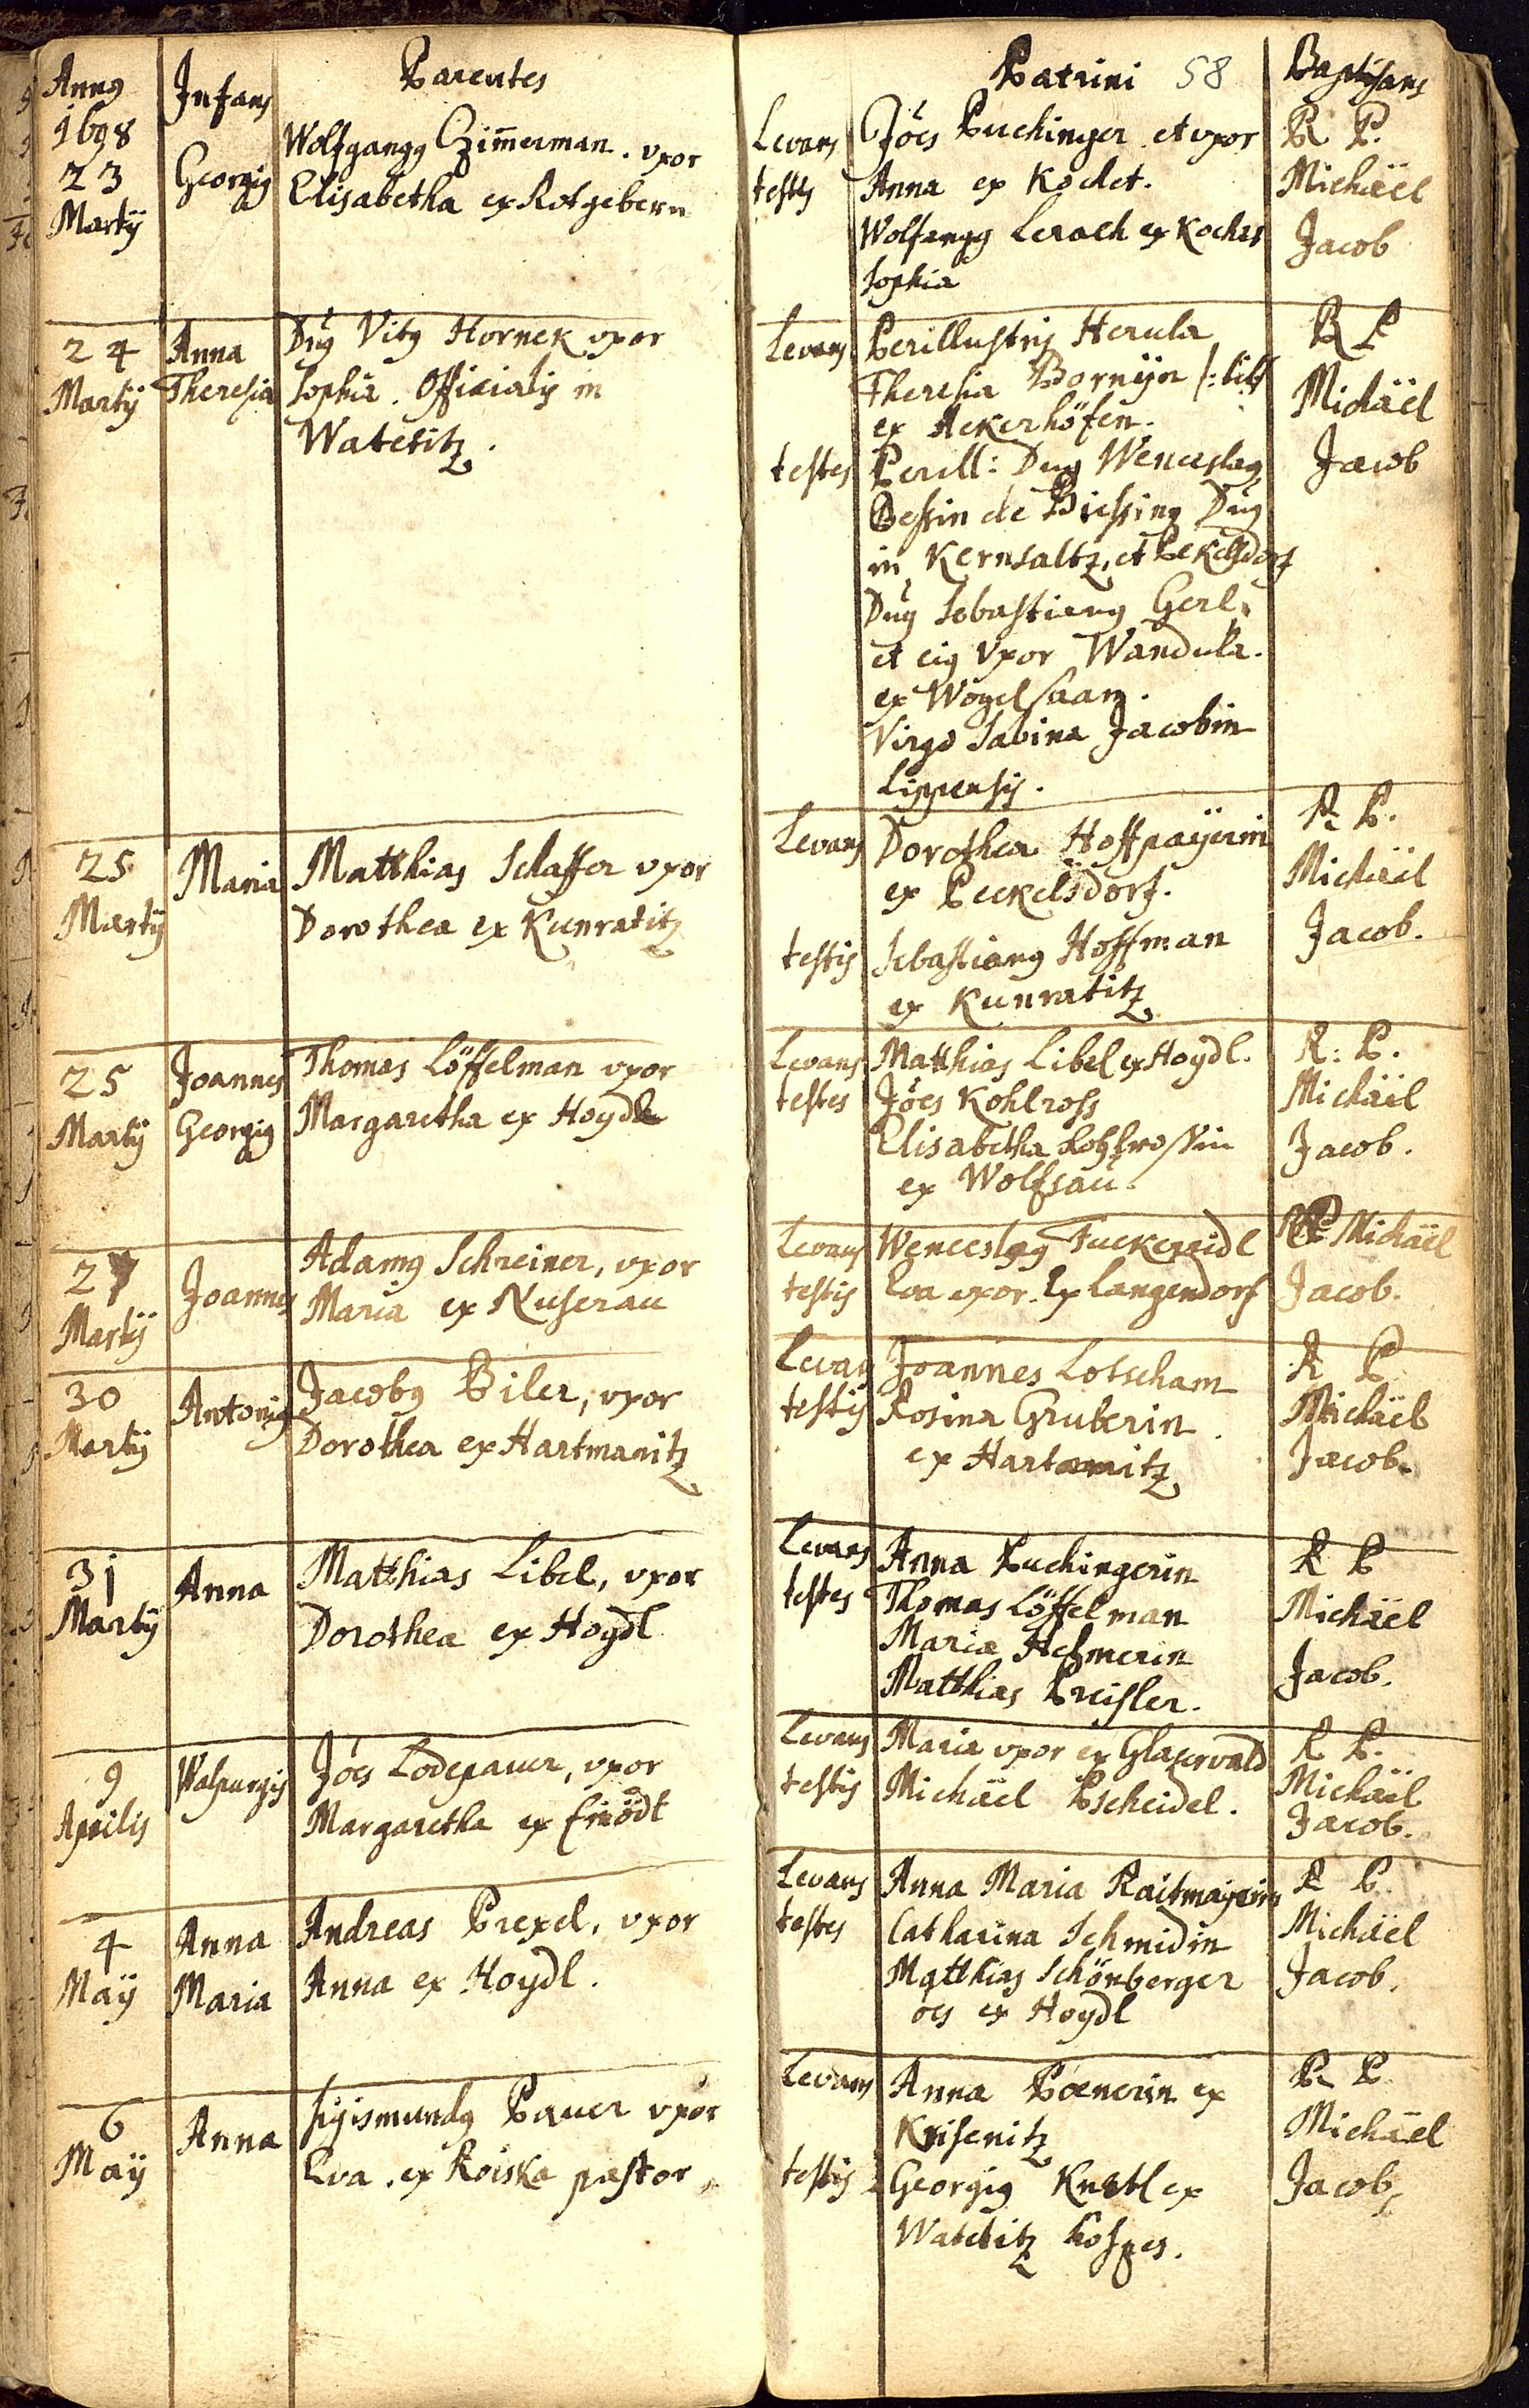 Anng
1698
23
Martij
Infans
Georgig
Parentes
Wolfgangg Czimerman. vxor
Elisabetha ex Rotgebern
Patrini 58
Baptisans
Levans
testis
Joes Puchinger et vxor
Anna ex Kochet.
Wolfangg Lerach ex Kochet
Sophia
R P.
Michäel
Jacob
24
Martij
Anna
Theresia
Dng Vitg Hornek vxor
Sophia. Officialis in
Watetitz.
Levans
Perillustris Herula
Theresia Bornijn
ex Ackerhöfen.
testes
Perill: Dng Wenceslag
Bessin de Biessing Dng
in Kernsaltz, et Pekelsdorf
Dng Sebastiang Gerl,
et eig Vxor Wandula.
ex Wogelsaang.
Virgo Sabina Jacobin
Lippensis.
R P
Michäel
Jacob
25
Martij
Maria
Matthias Schaffer vxor
Dorothea ex Kunratitz
Levans
Dorothea Hoffpaijerin
ex Peckelsdorf.
testis
Sebastiang Hoffman
ex Kunratitz
R P.
Michäel
Jacob.
25
Martij
Joannes
Georgig
Thomas Löffelman vxor
Margaretha ex Hoydl
Levans
testes
Matthias Libel ex Hoydl.
Joes Kohlross
Elisabetha Kohlrossin
ex Wolfsau.
R: P.
Michäel
Jacob.
27
Martij
Joannes
Adamg Schreiner, vxor
Maria ex Nuserau
Levans
testis
Wenceslag Tuckereidl
Eva vxor. Ex Langendorf
RP Michäel
Jacob.
30
Martij
Antonig
Jacobg Biler, vxor
Dorothea ex Hartmanitz
Levans
testis
Joannes Lotscham
Rosina Gruberin
ex Hartmanitz
R P
Michäel
Jacob.
31
Martij
Anna
Matthias Libel, vxor
Dorothea ex Hoydl
Levans
testes
Anna Puchingerin
Thomas Löffelman
Maria Hesmerin
Matthias Preisler.
R P
Michäel
Jacob.
9
Aprilis
Walpurgis
Joes Lodepauer, vxor
Margaretha ex Einödt
Levans
testis
Maria vxor ex Glaserwald
Michäel Pscheidel.
R P.
Michäel
Jacob.
4
Maij
Anna
Maria
Andreas Prexel, vxor
Anna ex Hoydl.
Levans
testes
Anna Maria Raitmayerin
Catharina Schmidin
Matthias Schönberger
oes ex Hoydl
R P.
Michäel
Jacob.
6
Maij
Anna
Sigismundg Pauer vxor
Eva. ex Roiska pastor
Levans
Anna Poenerin ex
Knisenitz
testis
Georgig Knebl ex
Watetitz hospes.
R P.
Michäel
Jacob,